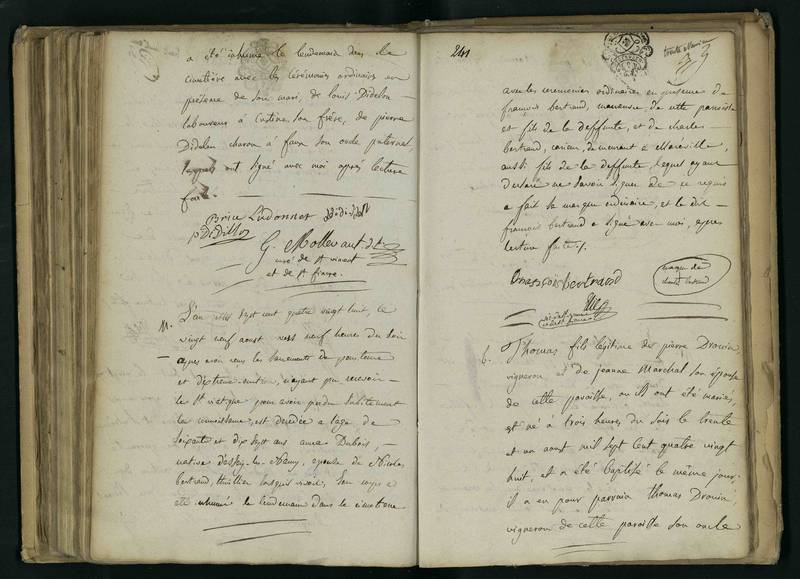 a été inhumé le lendemain dans le
cimetière avec les cérémonies ordinaires en
présence de son mari, de louis Didelon
laboureur à Custine son frère, de pierre
Didelon charon à faux son oncle paternel,
lesquels ont signé avec moi après lecture
faite.
G. Mollevaut
curé de st vincent
et de st fiacre.
M.
L'an mil sept cent quatre vingt huit, le
vingt neuf aoust vers neuf heures du soir
apres avoir reçu les sacrements de penitence
et d'extreme onction, n'ayant pu recevoir
le st viatique pour avoir perdu subitement
la connoissance, est décédée a l'age de
soixante et dix sept ans anne Dubois,
native d'essey-les-Nancy, epouse de Nicolas
bertrand, thuillier lorsqu'il vivoit, son corps a
été inhumé le lendemain dans le cimetiere
241
avec les ceremonies ordinaires en presence de
françois bertrand, manœuvre de cette paroisse
et fils de la deffunte, et de charles
bertrand, demeurant a Maréville,
aussi fils de la deffunte, lequel ayant
declaré ne savoir signer de ce requis
a fait sa marque ordinaire, et le dit
françois bertrand a signé avec moi, après
lecture faite.
françois bertrand
marque de
charles bertrand
b.
Thomas fils légitime de pierre Drouin,
vigneron et de jeanne Marchal son épouse
de cette paroisse, où ils ont été mariés,
est né a trois heures du soir le trente
et un aout mil sept cent quatre vingt
huit, et a été baptisé le même jour.
il a eu pour parrain thomas Drouin,
vigneron de cette paroisse son oncle